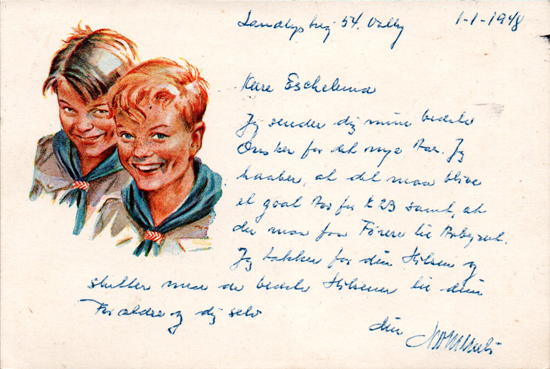 54. Valby 1-1-1948
Kære
Jeg sender dig mine bedste
Ønsker for det nye Aar. Jeg
haaber, at det maa blive
et godt Aar for K 23 samt, at
du maa faa Førere til
Jeg takker for din Hilsen og
slutter med de bedste Hilsener til dine
Forældre og dig selv
din